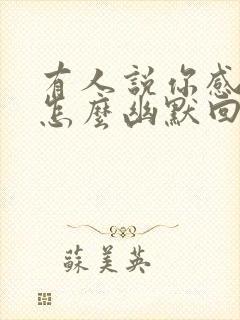 有人説你感
怎麼幽默回
蘇美英